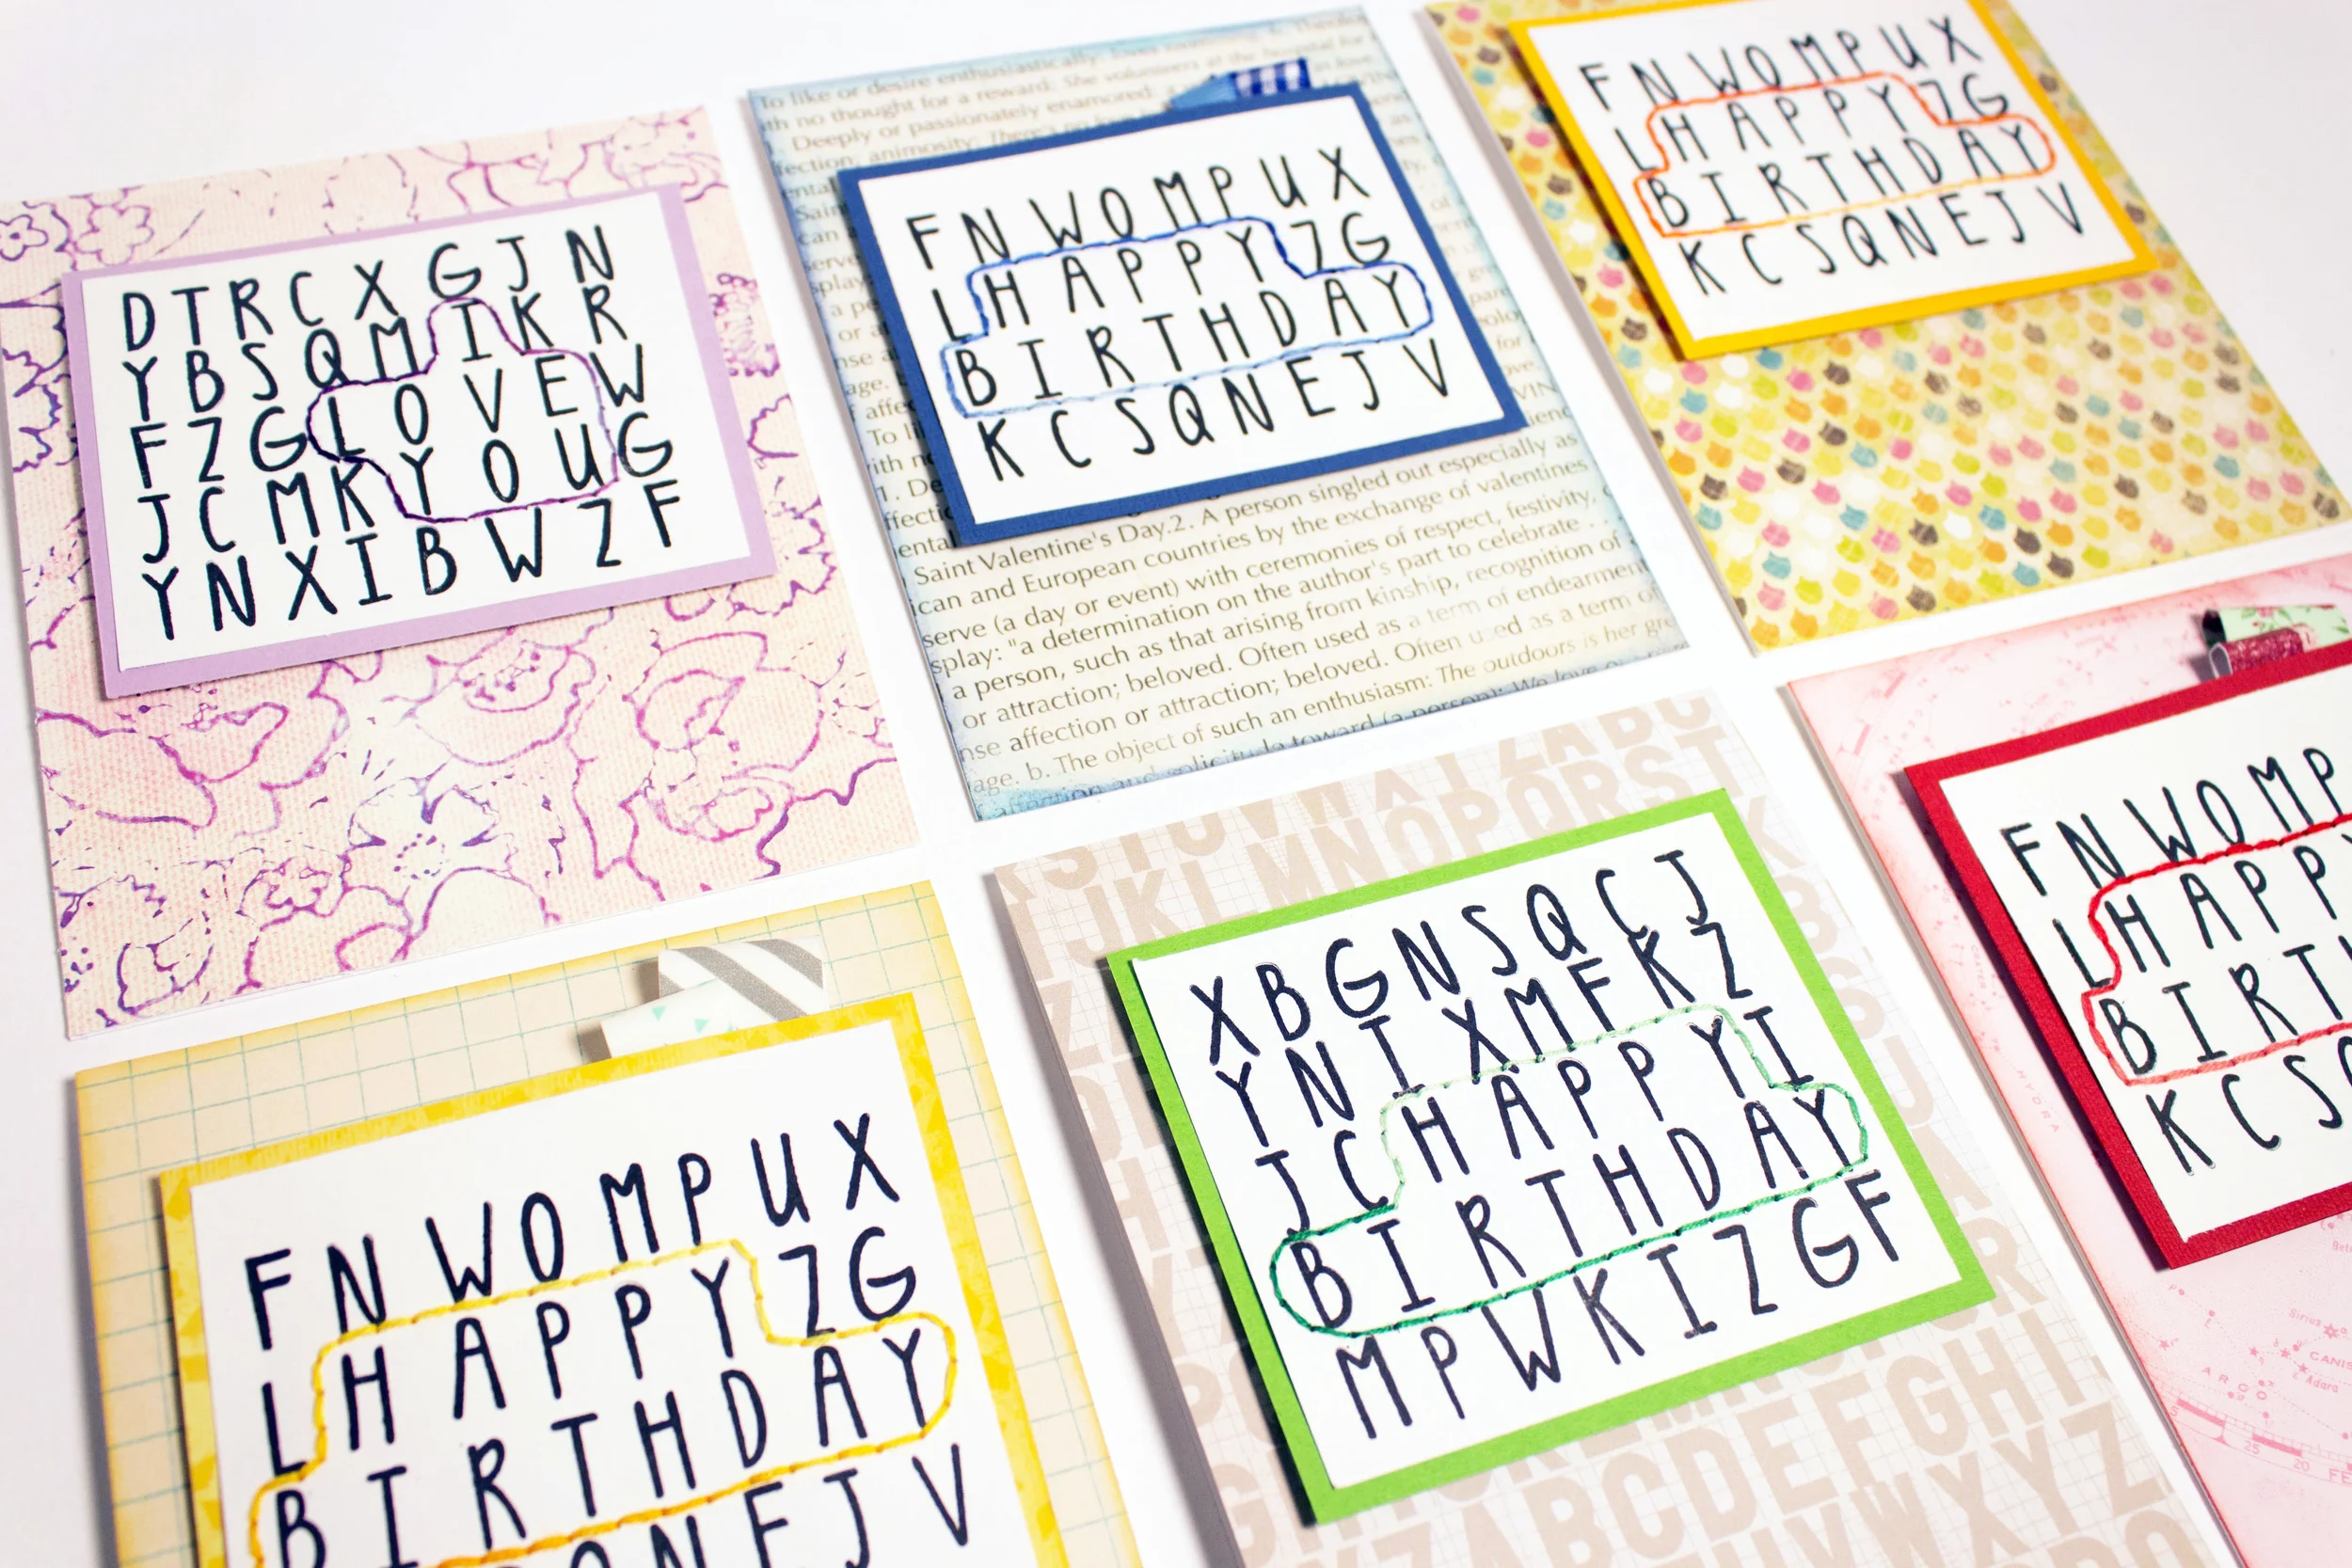 D T R C X G J N
Y B S Q M I K R
F Z G L O V E W
J C M K Y O U G
Y N X I B W Z F
To like or desire enthusiastically:
th no thought for a reward: She volunteers at the hospital for
Deeply or passionately enamored:
fection; animosity:
F N W O M P U X
L H A P P Y Z G
B I R T H D A Y
K C S Q N E J V
Saint Valentine's Day.2. A person singled out especially as
ican and European countries by the exchange of valentines
serve (a day or event) with ceremonies of respect, festivity,
splay: "a determination on the author's part to celebrate . . .
a person, such as that arising from kinship, recognition of
or attraction; beloved. Often used as a term of endearment
nse affection or attraction; beloved. Often used as a term of
age. b. The object of such an enthusiasm: The outdoors is her gre
affection and solicitude toward (a person): We love
F N W O M P U X
L H A P P Y Z G
B I R T H D A Y
K C S Q N E J V
F N W O M P U X
L H A P P Y Z G
B I R T H D A Y
Q N E J V
STUVW
ZABC
JKLMNOPQRST
X B G N S Q C J
Y N I X M F K Z
J C H A P P Y I
B I R T H D A Y
M P W K I Z G F
ABCDEFGHI
F N W O M P
L H A P P
B I R T
K C S
HYDRA
Sirius
CANIS
Adara
ARGO
25
20